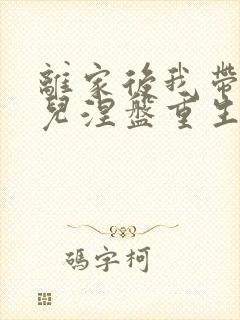 離家後我帶
兒涅盤重生
碼字柯